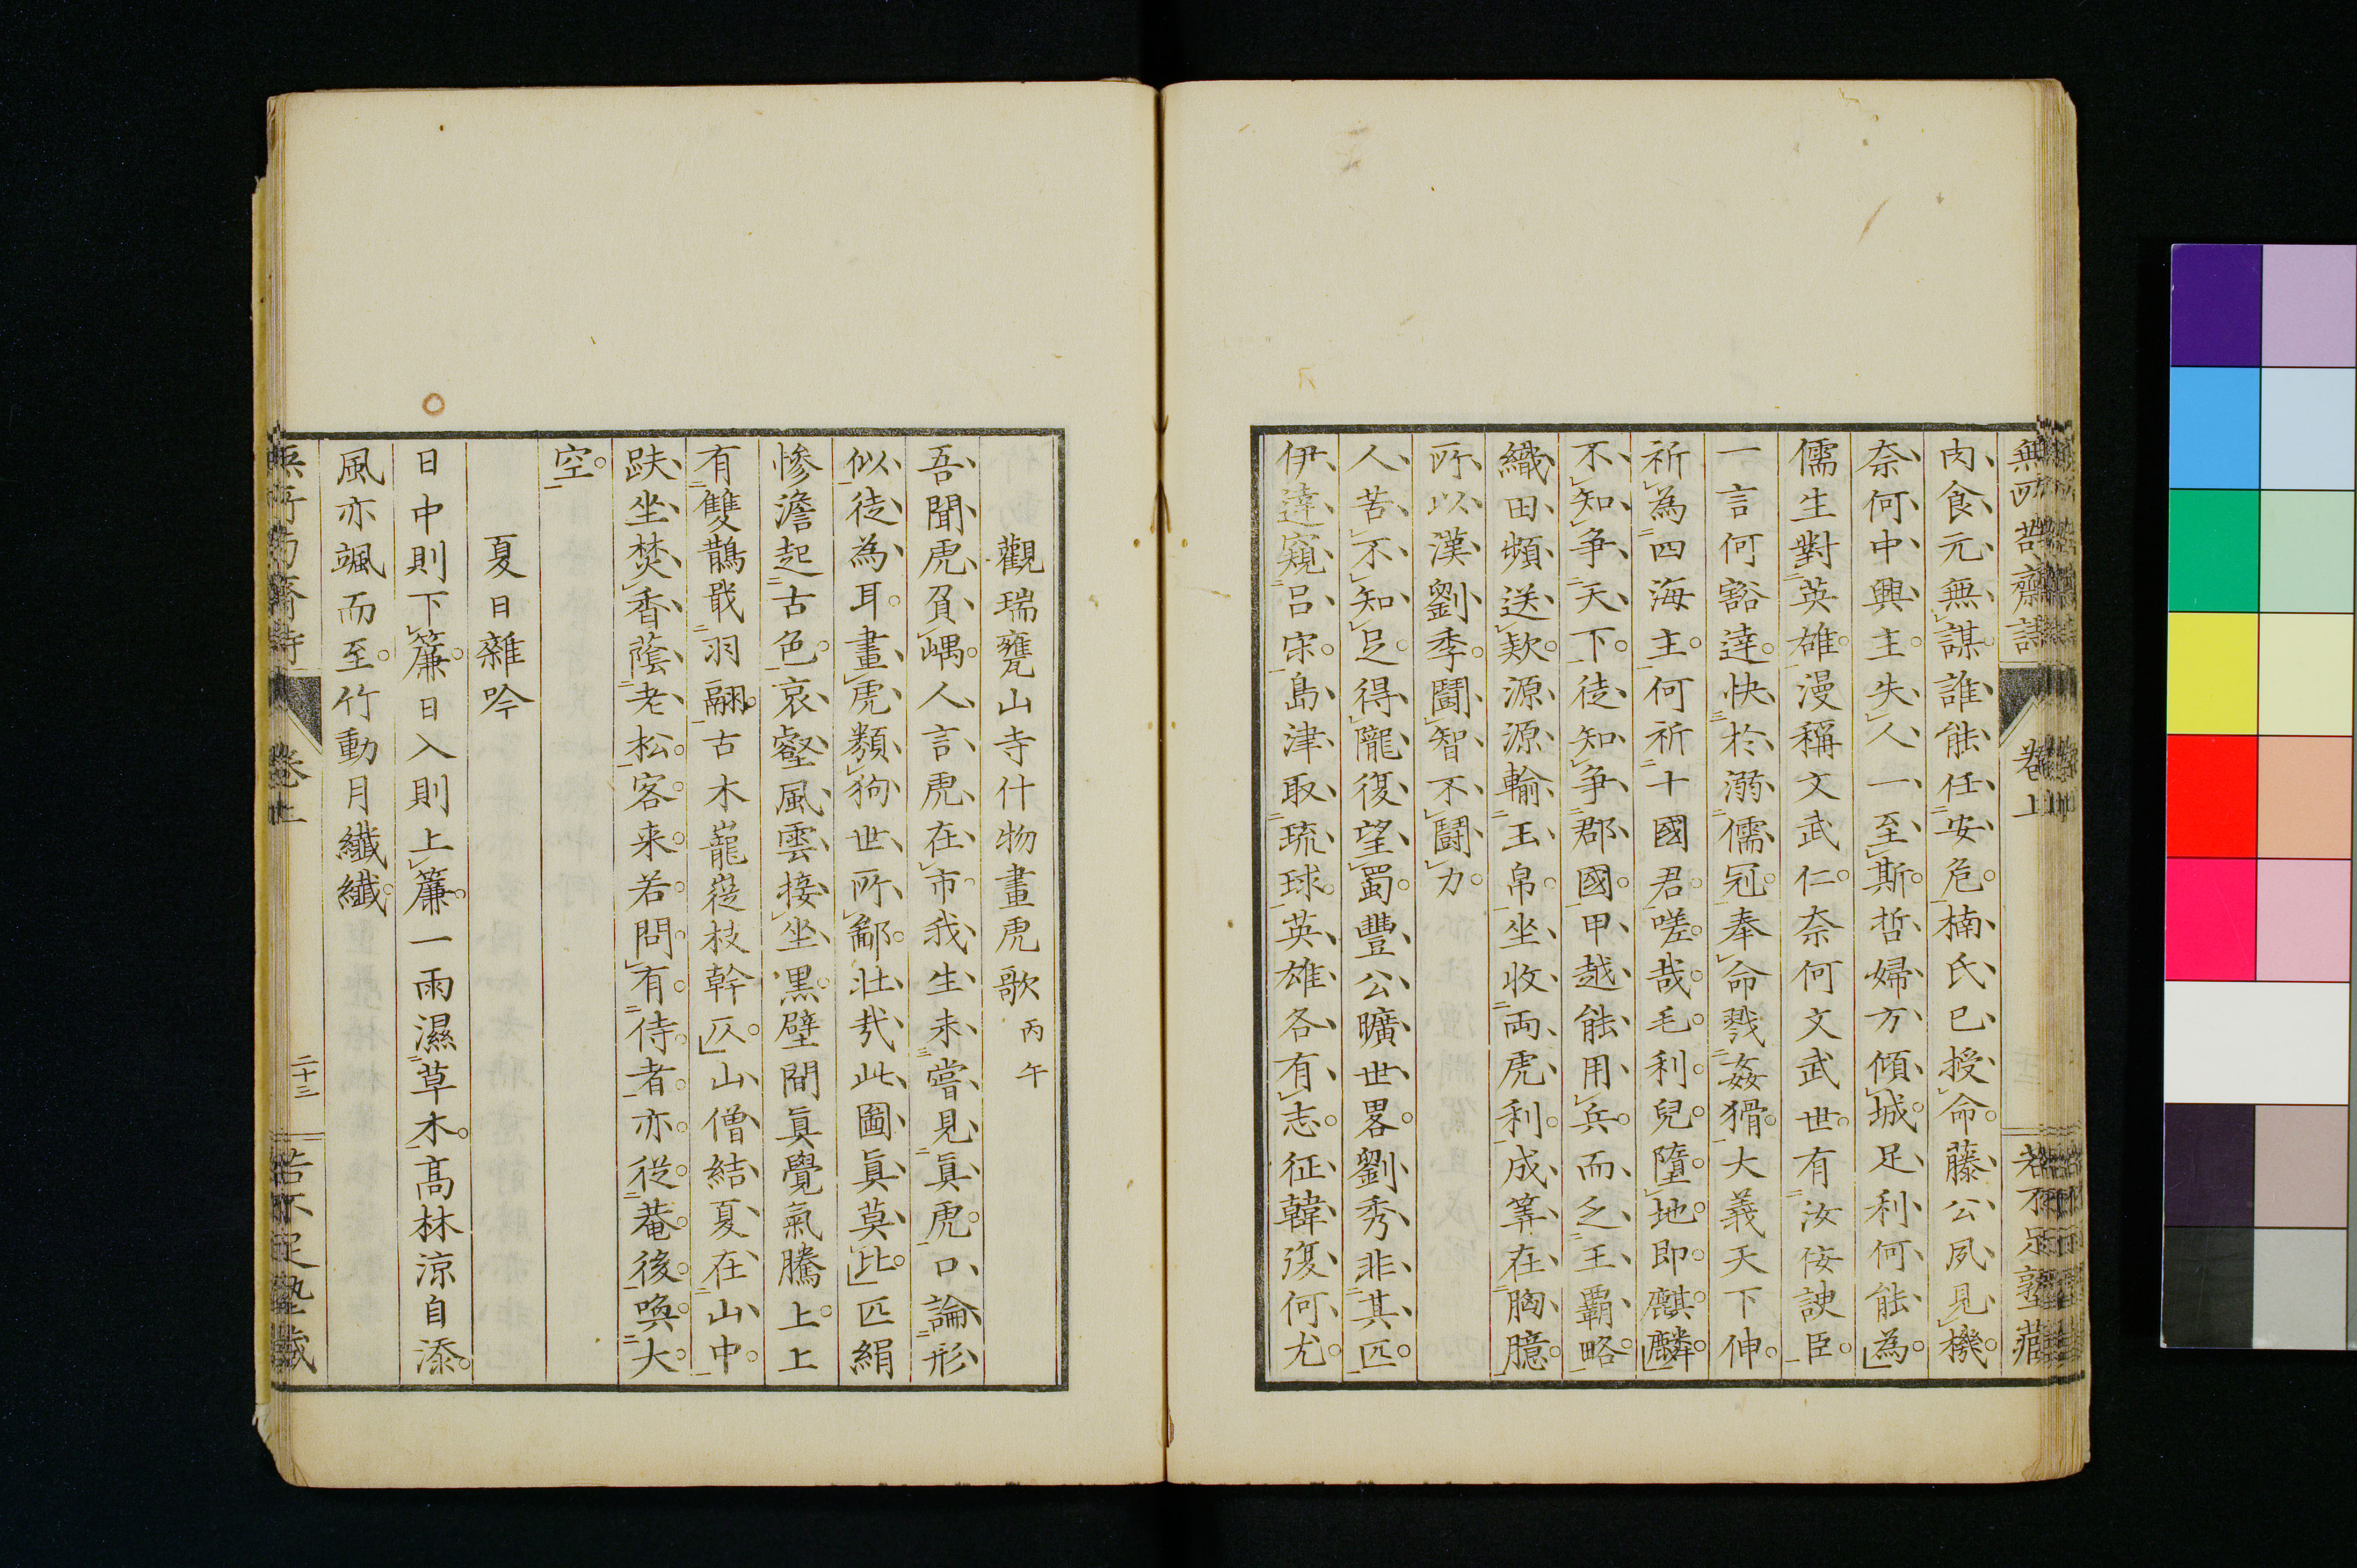 無所苟齋詩 卷上 若不足塾藏
肉食元無謀誰能任安危楠氏已授命藤公夙見機
奈何中興主失人一至斯哲婦方傾城足利何能為
儒生對英雄漫稱文武仁奈何文武世有汝侫諛臣
一言何豁達快於溺儒冠奉命戮姦猾大義天下伸
祈為四海主何祈十國君嗟哉毛利兒墮地即麒麟
不知爭天下徒知爭郡國甲越能用兵而乏王覇略
織田頻送欵源源輸玉帛坐收両虎利成筭在胸臆
所以漢劉季鬪智不鬪力
人苦不知足得隴復望蜀豐公曠世畧劉秀非其匹
伊達窺呂宋島津取琉球英雄各有志征韓復何尤
觀瑞甕山寺什物畫虎歌 丙午
吾聞虎負嵎人言虎在市我生未嘗見真虎口論形
似徒為耳畫虎類狗世所鄙壮哉此圖真莫比匹絹
慘澹起古色哀壑風雲接坐黒壁間真覺氣騰上上
有雙鵲戢羽翮古木巃嵸枝幹仄山僧結夏在山中
趺坐焚香蔭老松客来若問有侍者亦從菴後喚大
空
夏日雜吟
日中則下簾日入則上簾一雨濕草木高林涼自添
風亦颯而至竹動月纖纖
卷上 二十三 若不足塾藏